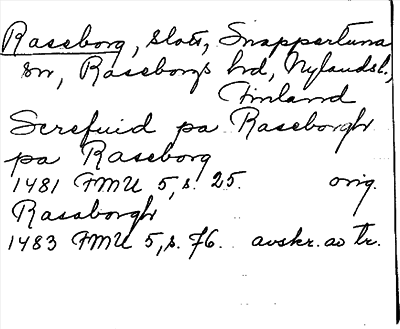 Raseborg, slott, Snappertuna
sn, Raseborgs hd, Nylandsl.,
Finland
Screfuid pa Raseborgh
pa Raseborg
1481 FMU 5, s. 25. orig.
Rasaborgh
1483 FMU 5, s. 76. avskr. av tr.